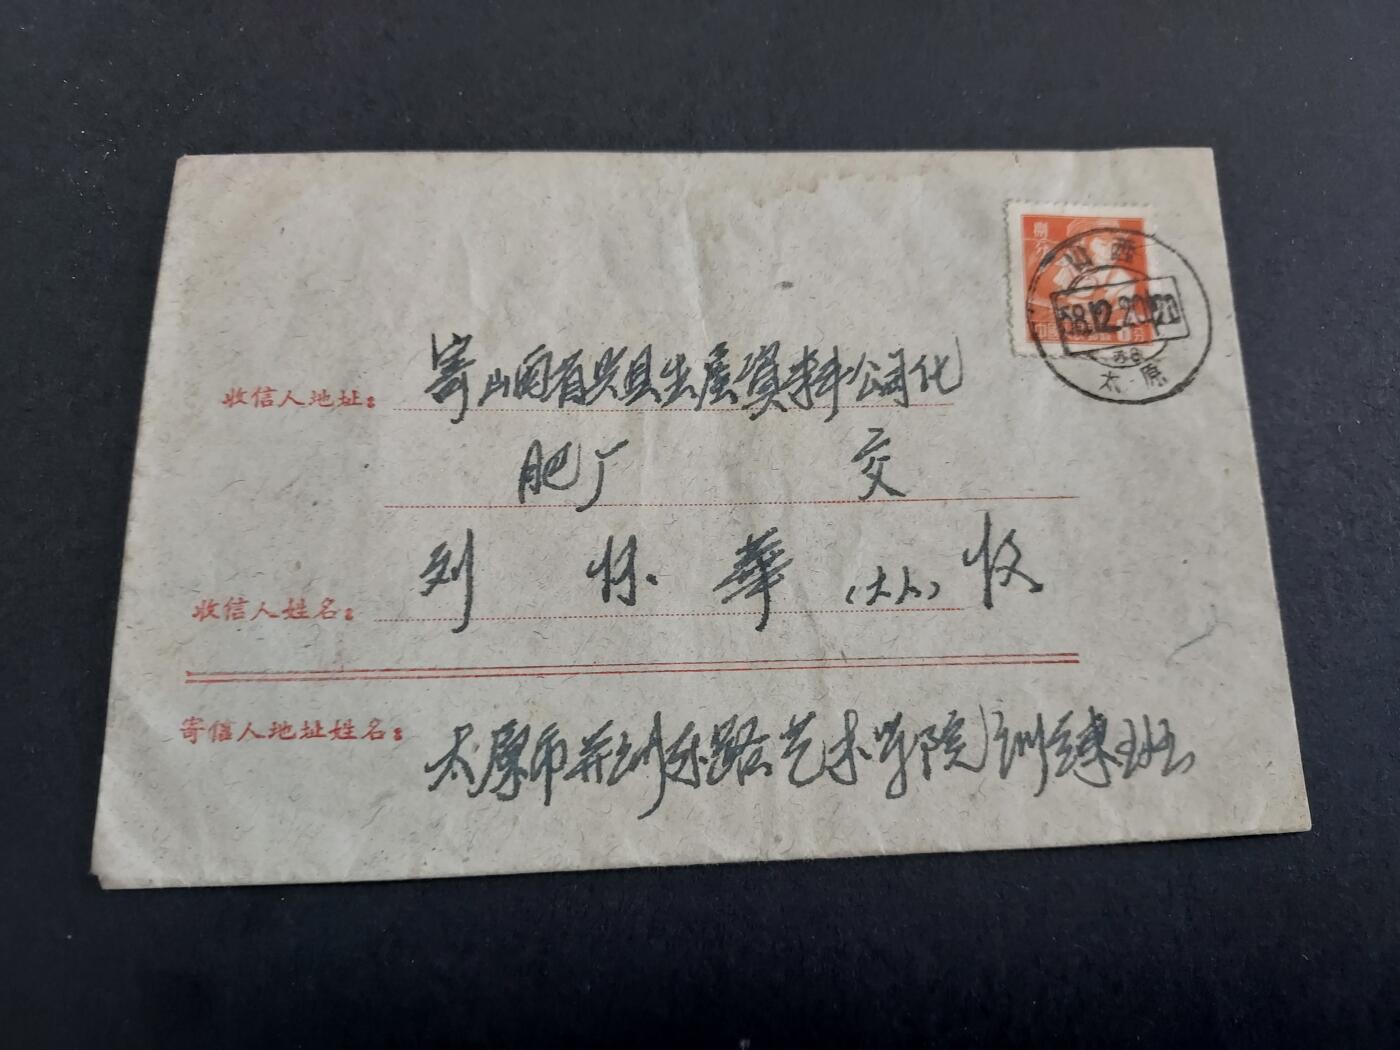 山西
58.12.20.20
太原
捌分
收信人地址：寄山西省兴县生产資料公司化
肥厂 交
收信人姓名：刘 怀 華（大人）收
寄信人地址姓名：太原市并州东路艺术学院训練班